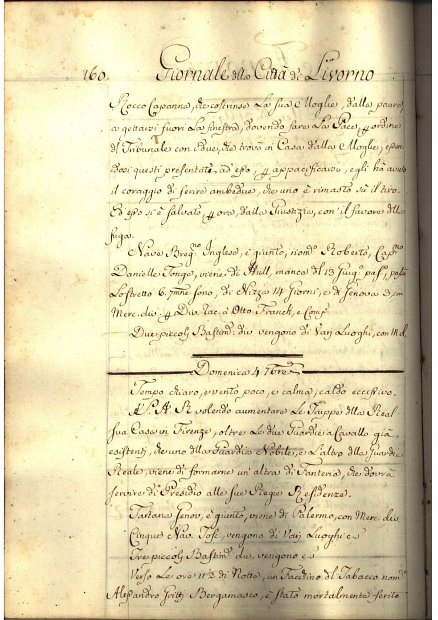 160. Giornale della Città di Livorno
Rocco Capanna, che costrinse La sua Moglie, dalla paura
a gettarsi fuori La finestra, dovendo fare La Pace, p ordine
del Tribunale con i due, che trovò in Casa dalla Moglie, essen
dosi questi presentati, ad esso p appacificarsi, egli hà avuto
il coraggio di ferire ambedue, che uno è rimasto sù il tiro.
Ed esso si è salvato, p ora, dalla Giustizia, con il favore della
fuga.
Nave Brig.no Inglese, è giunto, nom.o Roberto, Cap.no
Danielle Tonge, viene di Hull, manca del 13 Giug.o pass.o, passò
Lo stretto 6. sono, di Nizza 14 Giorni, e di Genova 3, con
Merc. div. p Div. Rac. à Otto Franck, e Comp.
Due piccoli Bastim. che vengono di Varj Luoghi, con
Domenica 4 7bre
Tempo chiaro, e vento poco, e calma, caldo eccessivo.
S. A. R. volendo aumentare Le Truppe della Real
sua Casa in Firenze, oltre Le due Guardie à Cavallo già
esistenti, che uno della Guardia Nobile, e L'altro della Guardia
Reale, viene di formarne un'altra di Fanteria, che dovrà
servire di Presidio alle sue Regie Residenze.
Tartana Genov. è giunto, viene di Palermo, con Merc. div.
Cinque Nav. Tosc. vengono di Varj Luoghi
Tre piccoli Bastim. che vengono
Verso Le ore 11 1/2 di Notte, un Facchino del Tabacco nom.o
Alessandro Gritti Bergamasco, è stato mortalmente ferito